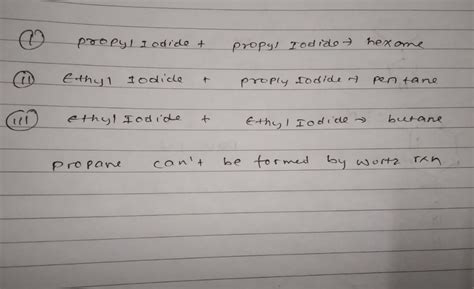 (i) propyl Iodide + propyl Iodide → hexane
(ii) Ethyl Iodide + proply Iodide → pentane
(iii) ethyl Iodide + Ethyl Iodide → butane
propane can't be formed by wurtz rxn